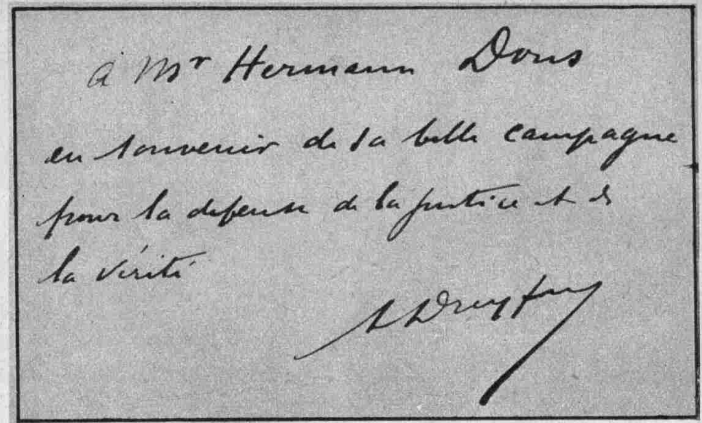 à Mr Hermann Dons
en souvenir de sa belle campagne
pour la defense de la justice et de
la vérité
A Dreyfus